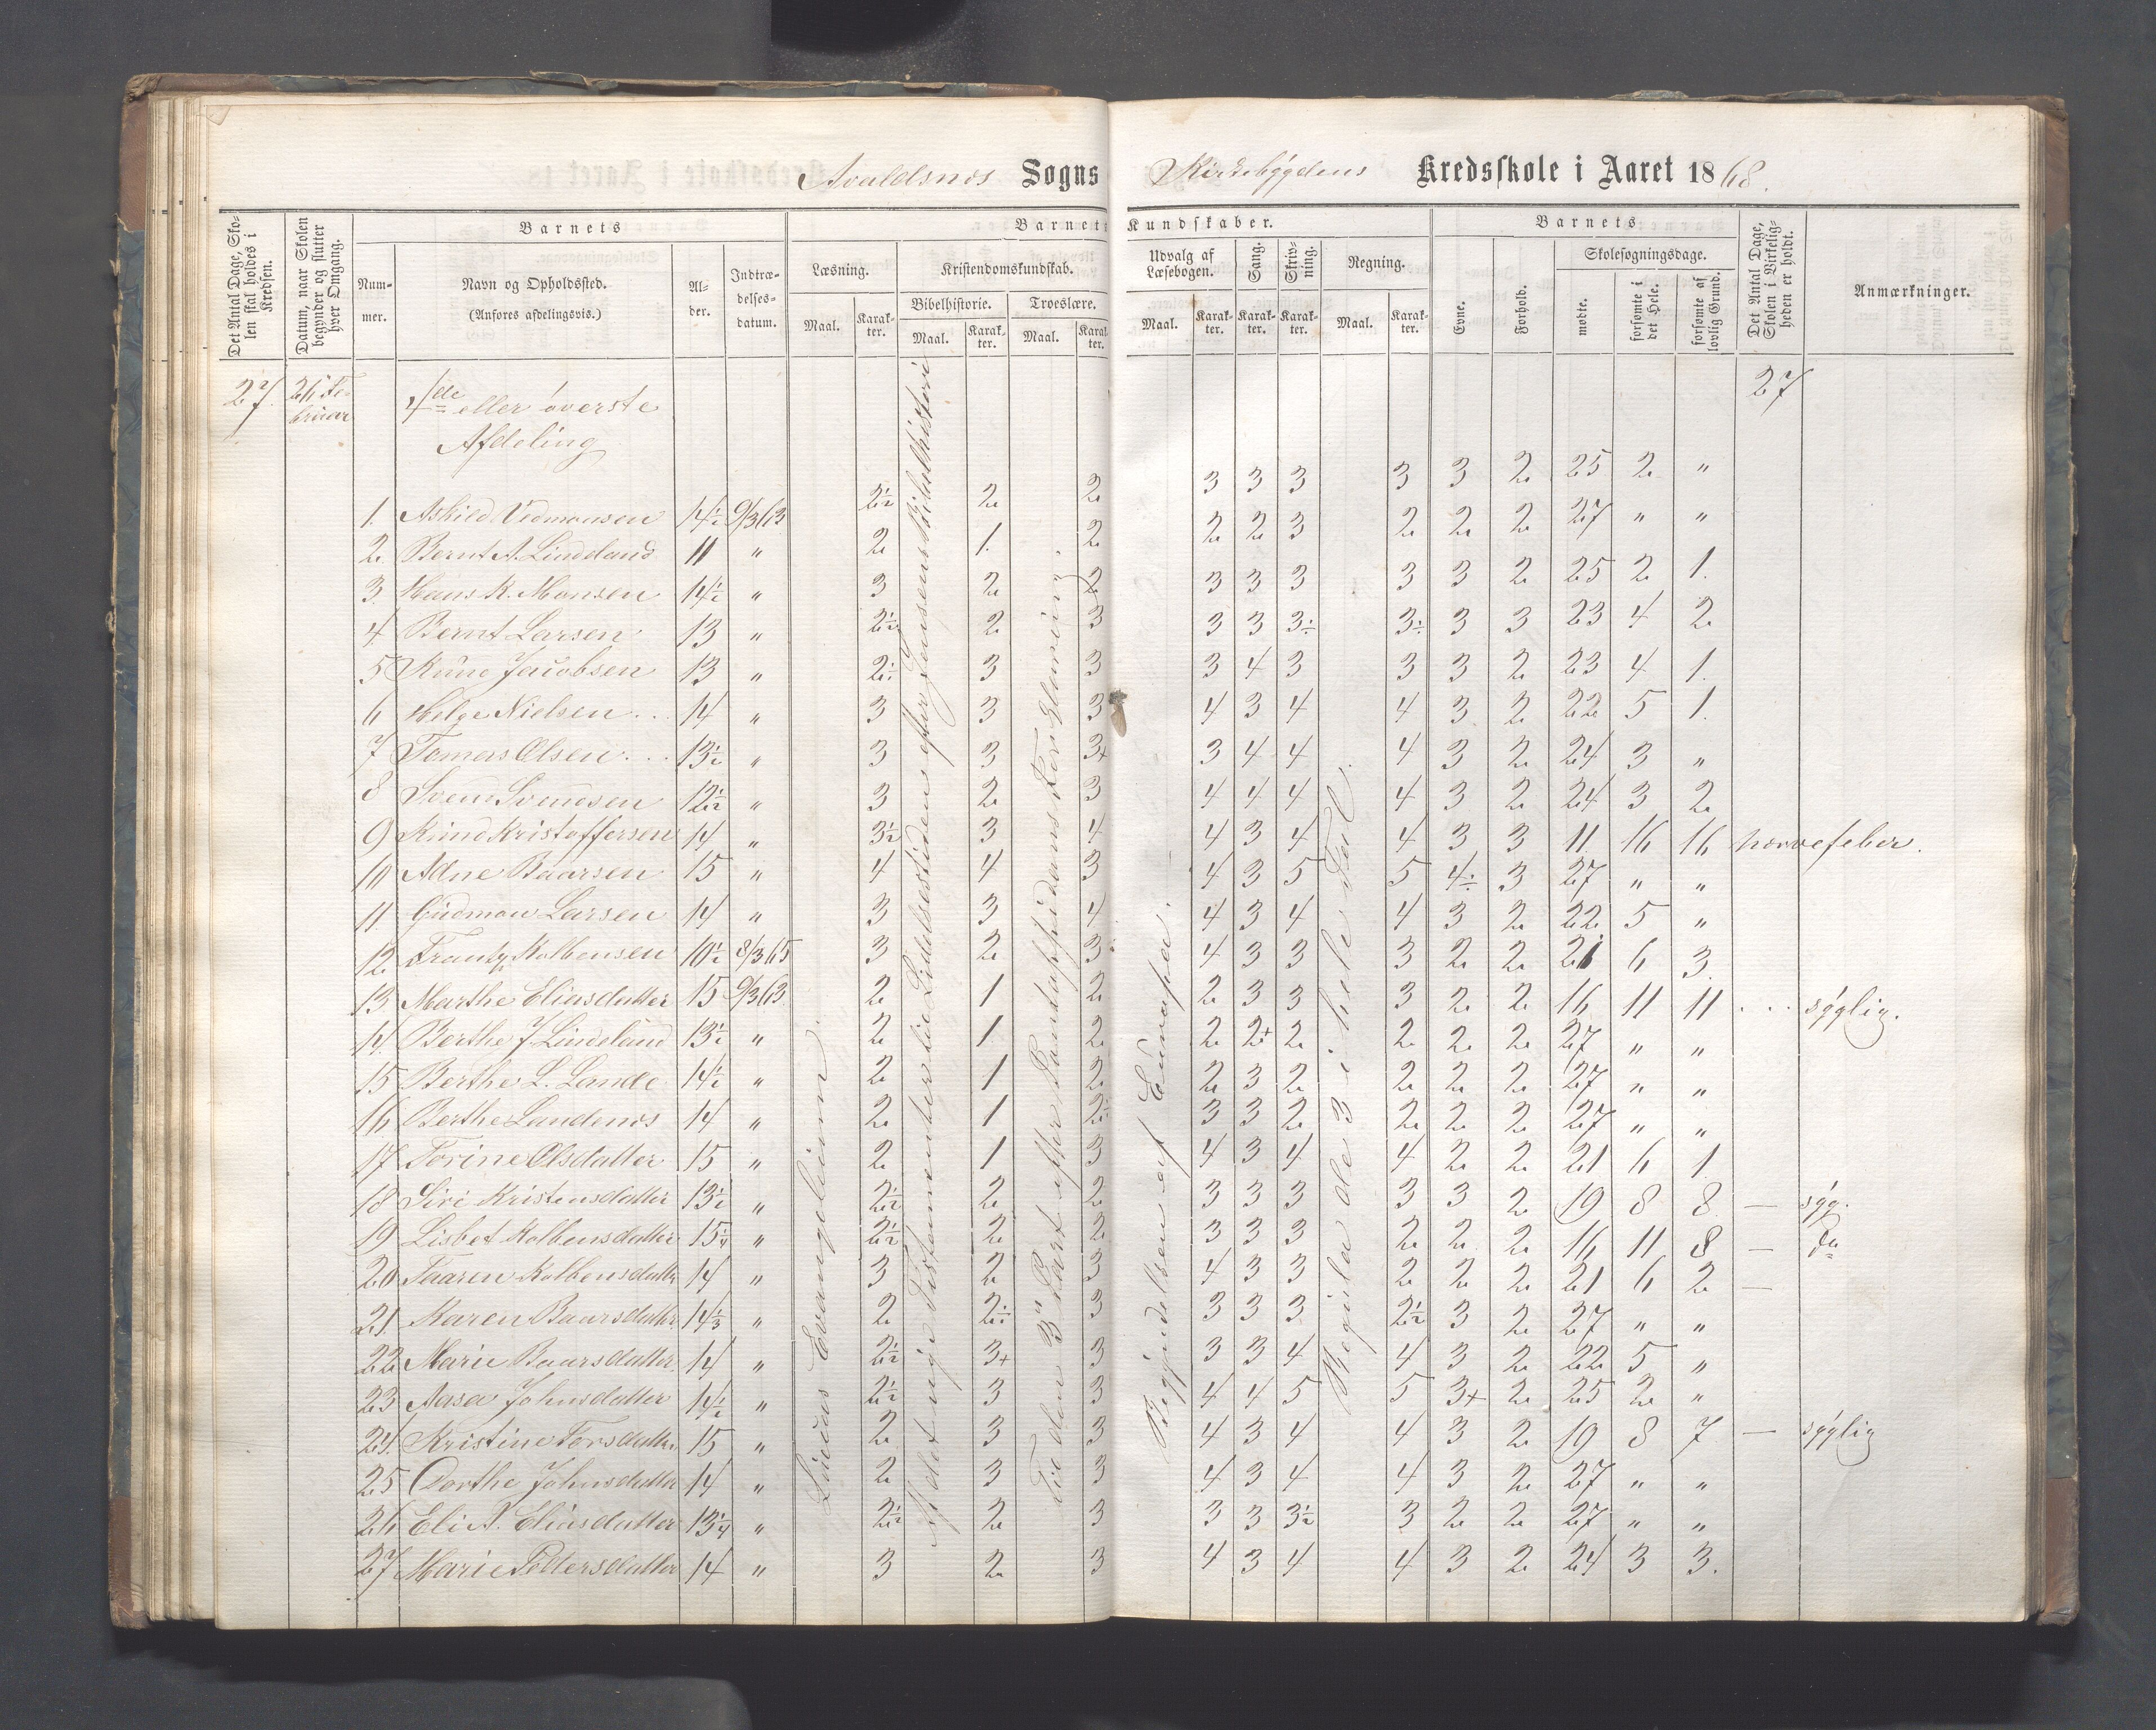 Avaldsnes Sogns Kirkebygdens Kredsskole i Aaret 1868.
Det Antal Dage, Skolen skal holdes i Kredsen.
Datum, naar Skolen begynder og slutter hver Omgang.
Barnets
Nummer.
Navn og Opholdssted.
(Anføres afdelingsvis.)
Alder.
Indtrædelsesdatum.
Barnets Kundskaber.
Læsning.
Maal. Karakter.
Kristendomskundskab.
Bibelhistorie.
Maal. Karakter.
Troeslære.
Maal. Karakter.
Udvalg af Læsebogen.
Maal. Karakter.
Sang.
Karakter.
Skrivning.
Karakter.
Regning.
Maal. Karakter.
Barnets
Evne.
Forhold.
Skolesøgningsdage.
mødte.
forsømte i det Hele.
forsømte af lovlig Grund.
Det Antal Dage, Skolen i Virkeligheden er holdt.
Anmærkninger.
27. 26 Februar 4de eller øverste 27
Afdeling
1. Askild Vedmonsen 14½ 9/3 63 2½ 2 2 3 3 3 3 3 2 25 2 "
2. Bernt A. Lindeland 11 " 2 1. 2 2 2 3 2 2 2 27 " "
3. Hans K. Monsen 14½ " 3 2 2 3 3 3 3 3 2 25 2 1.
4 Bernt Larsen 13 " 2½ 2 3 3 3 3÷ 3÷ 3 3 23 4 2
5 Knud Jacobsen 13 " 2÷ 3 3 3 4 3 3 3 2 23 4 1.
6 Helge Nielsen 14 " 3 3 3 4 3 4 4 3 2 22 5 1.
7 Tomas Olsen 13½ " 3 3 3+ 3 4 4 4 3 2 24 3 "
8 Sven Svendsen 12½ " 3 2 3 4 4 4 4 3 2 24 3 2
9 Knud Kristoffersen 14 " 3½ 3 4 4 3 4 4 3 3 11 16 16 nervefeber.
10 Adne Baarsen 15 " 4 4 3 4 3 5 5 4÷ 3 27 " "
11 Gudmon Larsen 14 " 3 3 4 4 3 4 4 3 2 22 5 "
12 Frantz Kolbensen 10½ 8/3 65 3 2 3 4 3 3 3 2 2 21 6 3
13 Marthe Eliasdatter 15 9/3 63 2 1 2 2 3 3 3 2 2 16 11 11 . . . syglig.
14. Berthe J. Lindeland 13½ " 2 1. 2 2 2+ 2 2 2 2 27 " "
15 Berthe L. Lande 14½ " 2 1 2 2 3 2 2 2 2 27 " "
16 Berthe Landenes 14 " 2 1 2÷ 3 3 2 2 2 2 27 " "
17 Torine Olsdatter 15 " 2 1 3 4 3 4 4 2 2 21 6 1
18 Siri Kristensdatter 13½ " 2½ 2 2 3 3 3 3 3 2 19 8 8 — syg.
19 Lisbet Kolbensdatter 15¼ " 2½ 2 2 3 3 3 2 2 2 16 11 8 — do
20 Taaren Kolbensdatter 14 " 3 2 3 4 3 3 2 2 2 21 6 2 —
21. Karen Baarsdatter 14⅓ " 2 2÷ 3 3 3 3 2½ 3 2 27 " "
22 Marie Baarsdatter 14 " 2½ 3+ 3 3 3 4 4 3 2 22 5 "
23 Aasa Johnsdatter 14½ " 2½ 3 3 4 4 5 5 3+ 2 25 2 "
24. Kristine Torsdatter 15 " 2 3 3 4 3 4 4 3 2 19 8 7 — syglig
25 Dorthe Johnsdatter 14 " 2 3 3 4 3 4 4 3 2 27 " "
26 Eli A. Eliasdatter 13¼ " 2½ 2 3 3 3 3½ 3 2 2 27 " "
27 Marie Pedersdatter 14 " 3 2 3 4 3 4 4 3 2 24 3 3.
Lucas Evangelium.
Af det nye Testamente til Lidelsestiden efter Jensens Bibelhistorie
Til den 3" Part efter Pontoppidans Forklaring.
Begyndelsen af Europa.
Regula de 3 i hele Tal.